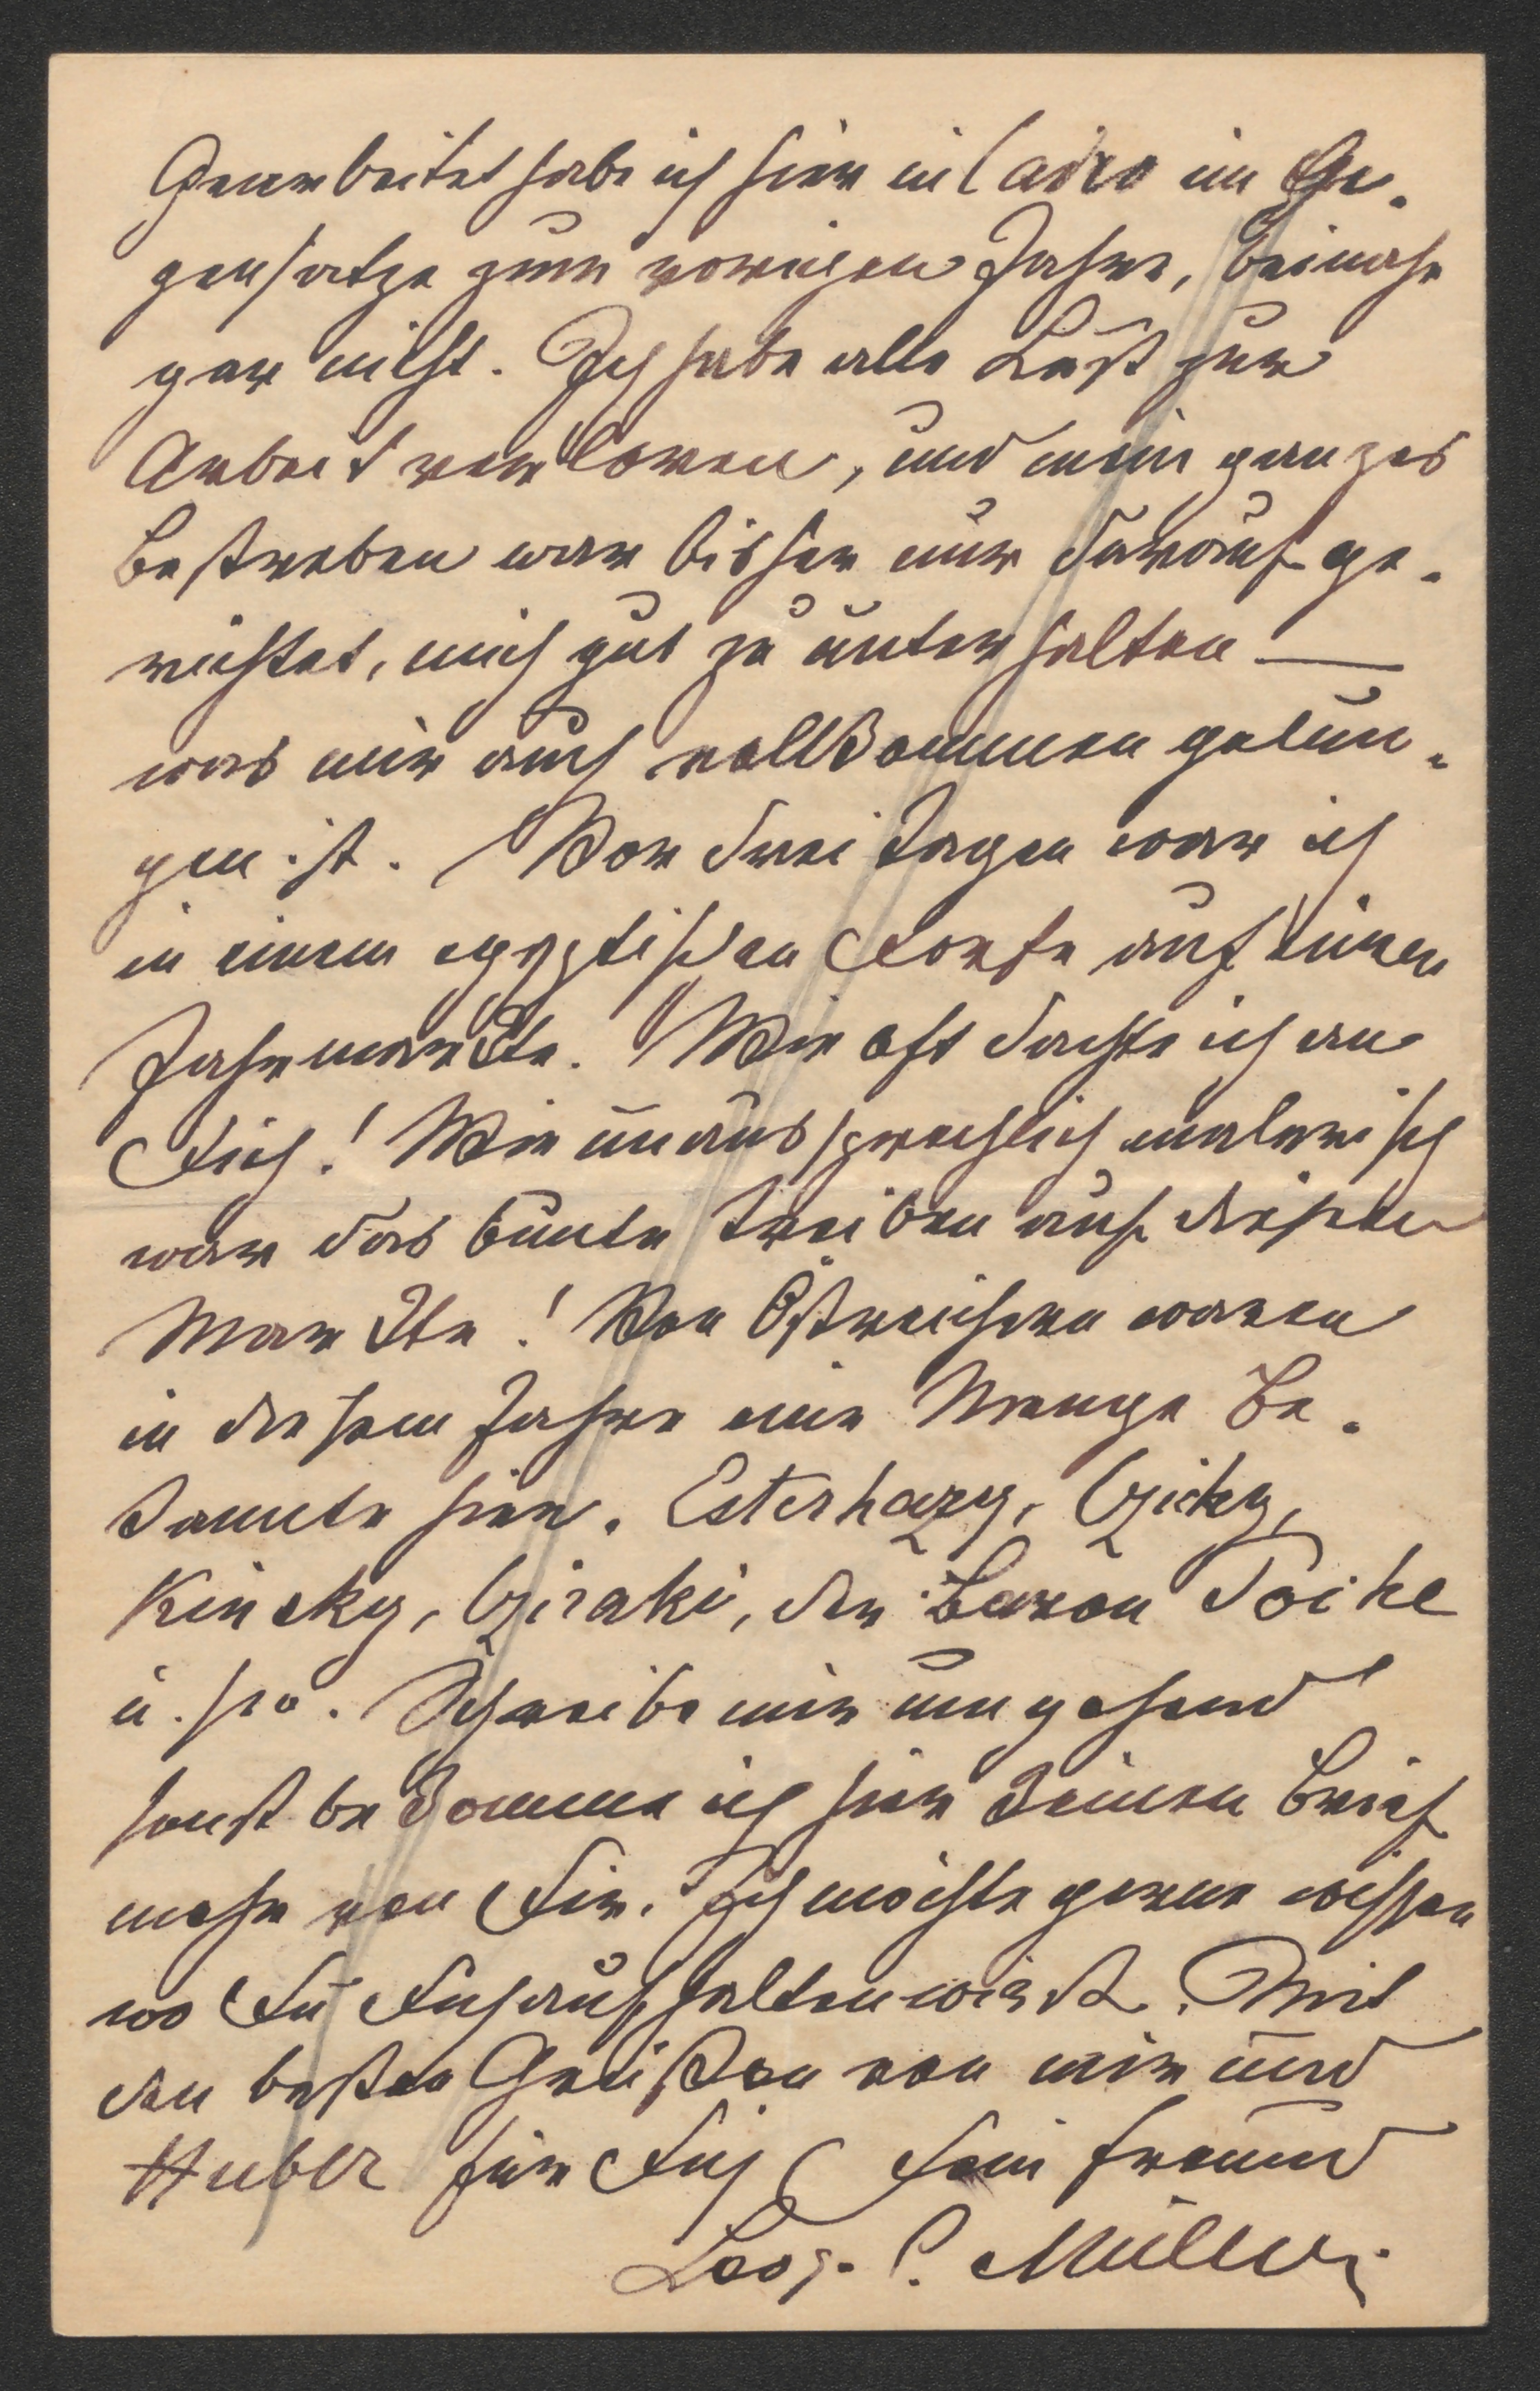 Gearbeitet habe ich hier in Cairo im Ge-
gensatze zum vorigen Jahre, beinahe
gar nicht. Ich habe alle Lust zur
Arbeit verloren, und mein ganzes
Bestreben war bisher nur darauf ge-
richtet, mich gut zu unterhalten —
was mir auch vollkommen gelun-
gen ist. Vor drei Tagen war ich
in einem egyptischen Dorfe auf einem
Jahrmarkte. Wie oft dachte ich an
Dich! Wie unaussprechlich malerisch
war das bunte Treiben auf diesem
Markte! Von Östreichern waren
in diesem Jahre eine Menge Be-
kannte hier. Esterhazy, Cziky,
Kinsky, Cziraki, der Baron
u. s. w. Schreibe mir umgehend
sonst bekomme ich hier keinen Brief
mehr von Dir. Ich möchte gerne wissen
wo Du Dich aufhalten wirst. Mit
den besten Grüßen von mir und
Huber für Dich Dein Freund
Leop. C. Müller